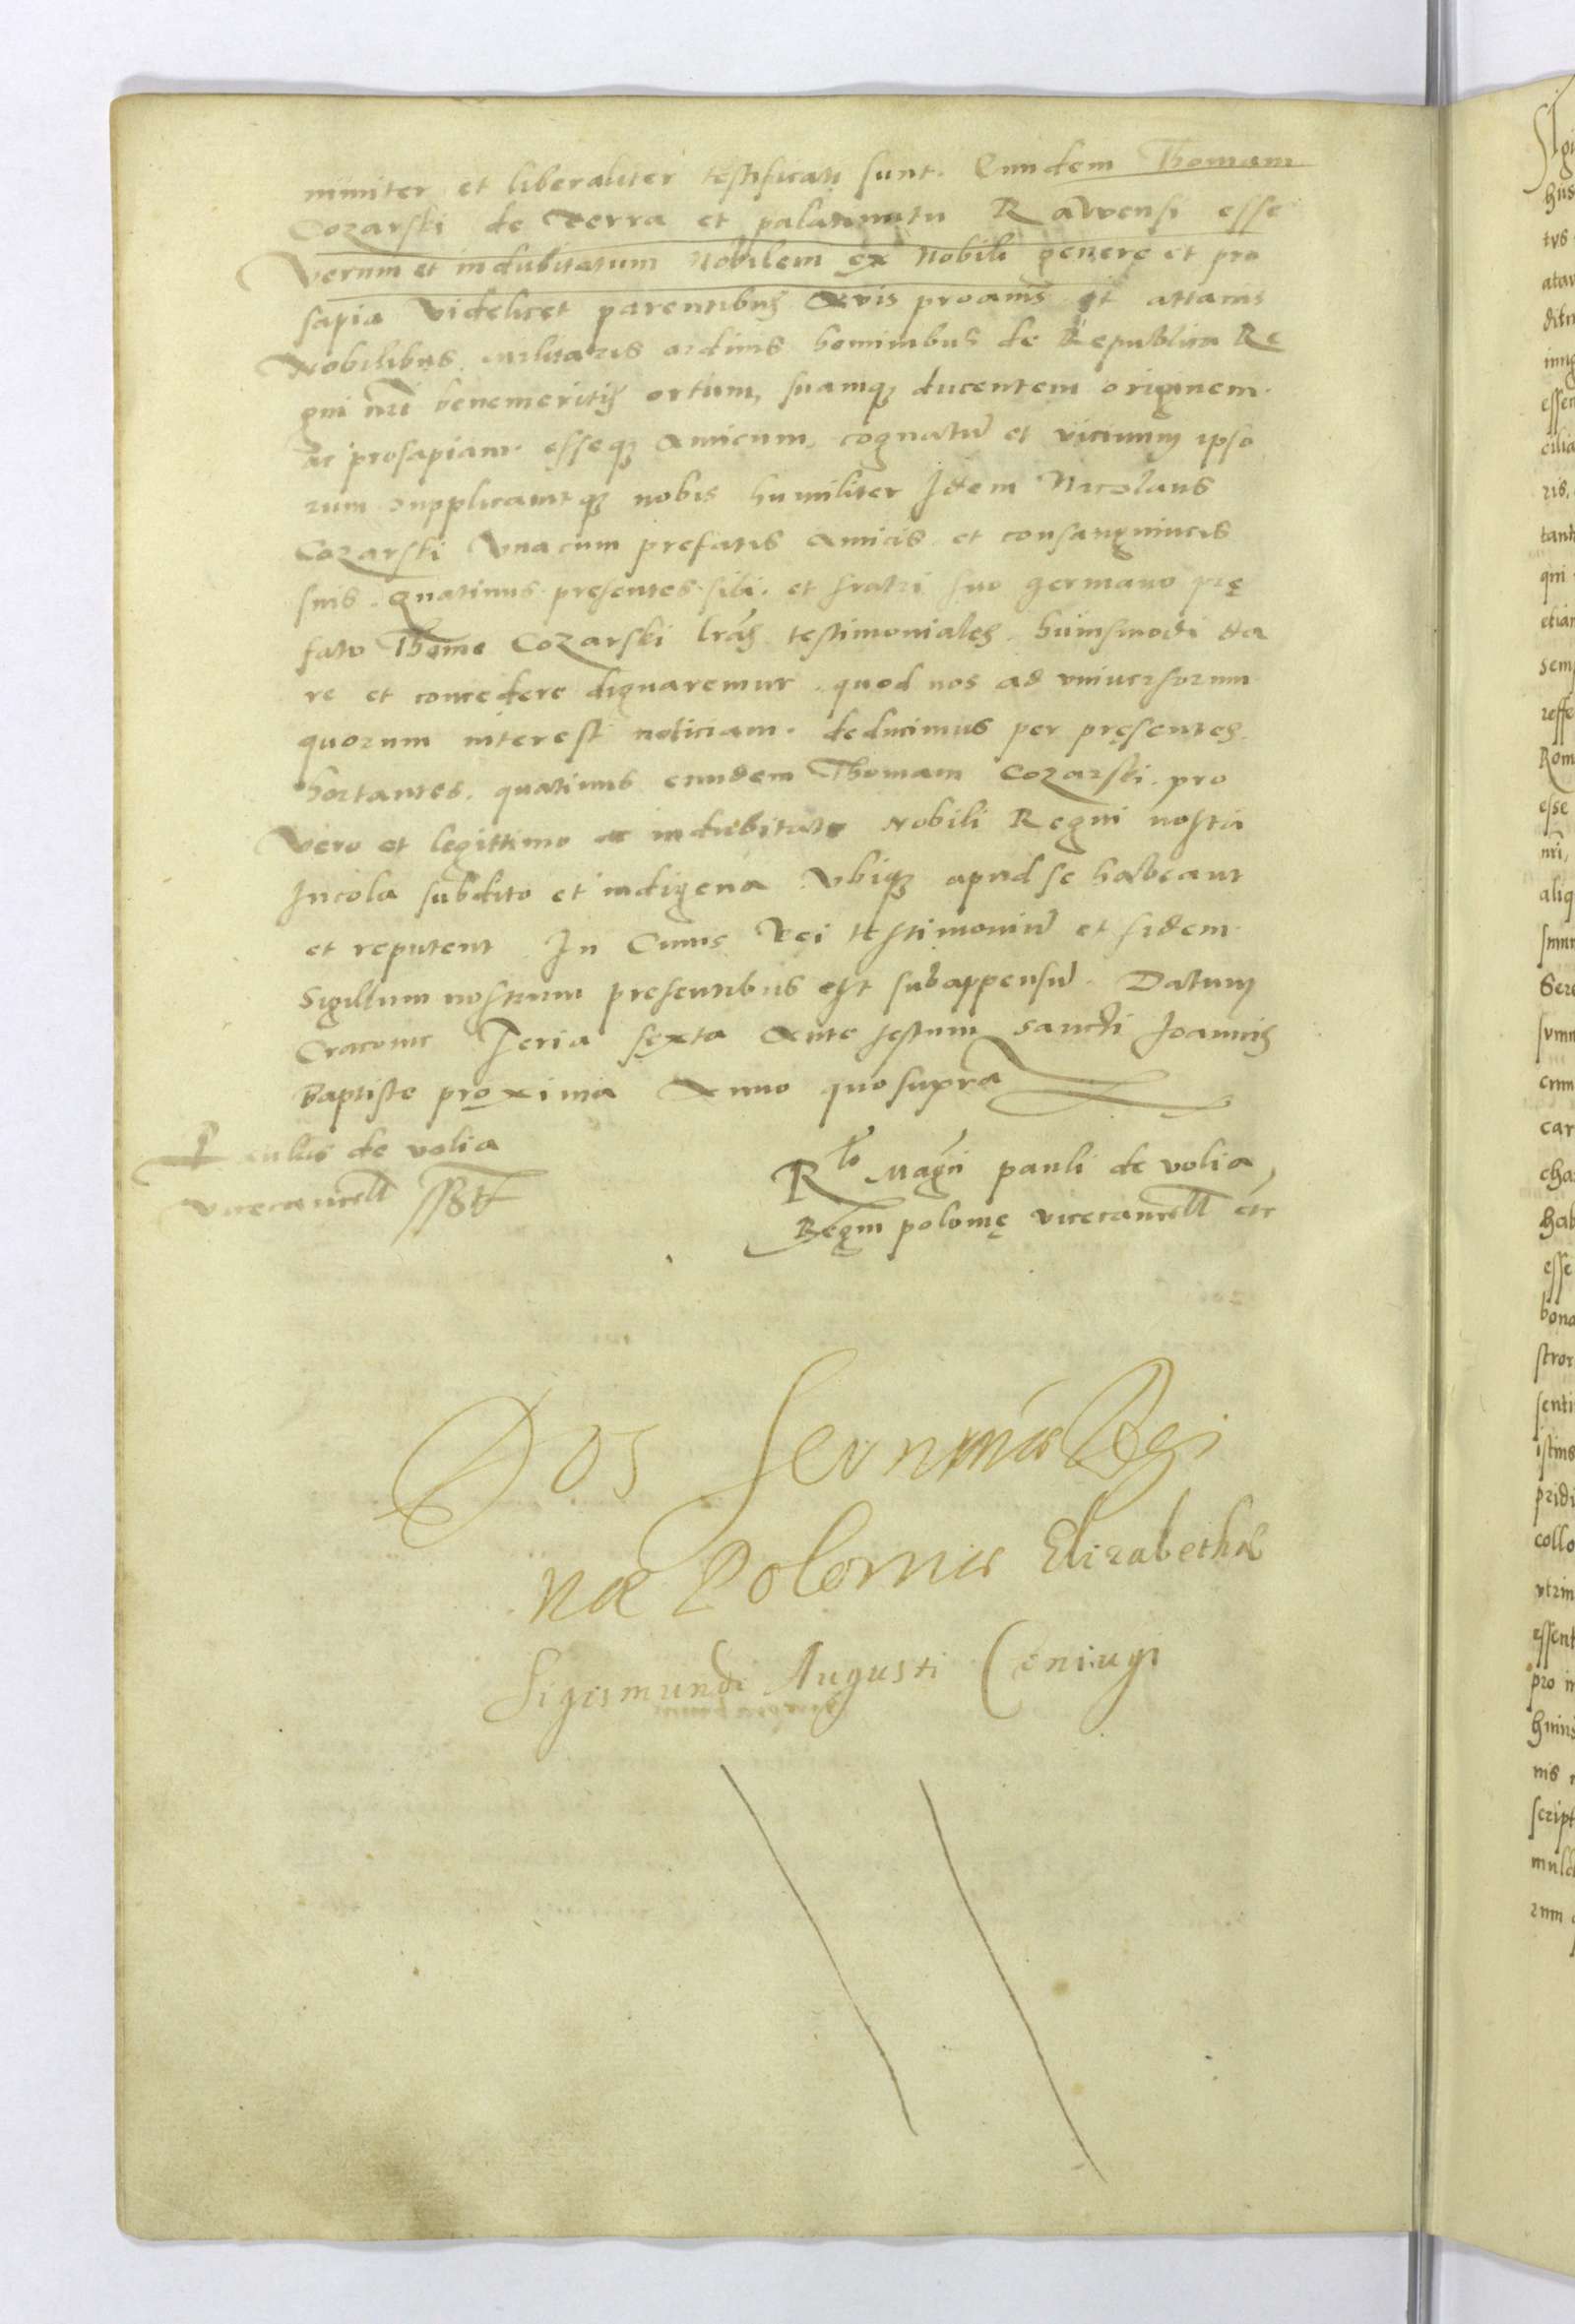 nimiter et liberaliter testificati sunt. Eundem Thomam
Cozarski de Terra et palatinatu Rawensi esse
Verum et indubitatum Nobilem ex Nobili genere et pro
sapia videlicet parentibus Avis proavis et attavis
Nobilibus militaris ordinis hominibus de Republica Re
gni nri benemeritis ortum, suamq; ducentem originem
ac prosapiam. esseq; Amicum, cognatū et vicinum ipso
rum supplicaruntq; nobis humiliter Idem Nicolaus
Cozarski Vnacum prefatis Amicis et consanguineis
suis. Quatinus presentes sibi. et fratri suo germano prę
fato Thome Cozarski lras testimoniales huiusmodi da
re et concedere dignaremur. quod nos ad vniuersorum
quorum interest noticiam. deducimus per pręsentes.
hortantes. quatinus eundem Thomam Cozarski. pro
Vero et legittimo ac indubitato Nobili Regni nostri
Incola subdito et indigena Vbiq; apud se habeant
et reputent In Cuius Rei testimoniū et fidem
Sigillum nostrum presentibus est subappensū. Datum
Cracovie Feria sexta Ante festum sancti Joannis
Baptiste proxima Anno quo supra
Paulus de volia
vicecancell sst
Rlo Magci pauli de volia,
Regni polonię vicecancell etc
Dos Serenmæ Regi
næ Poloniæ Elizabethæ
Sigismundi Augusti Coniugi